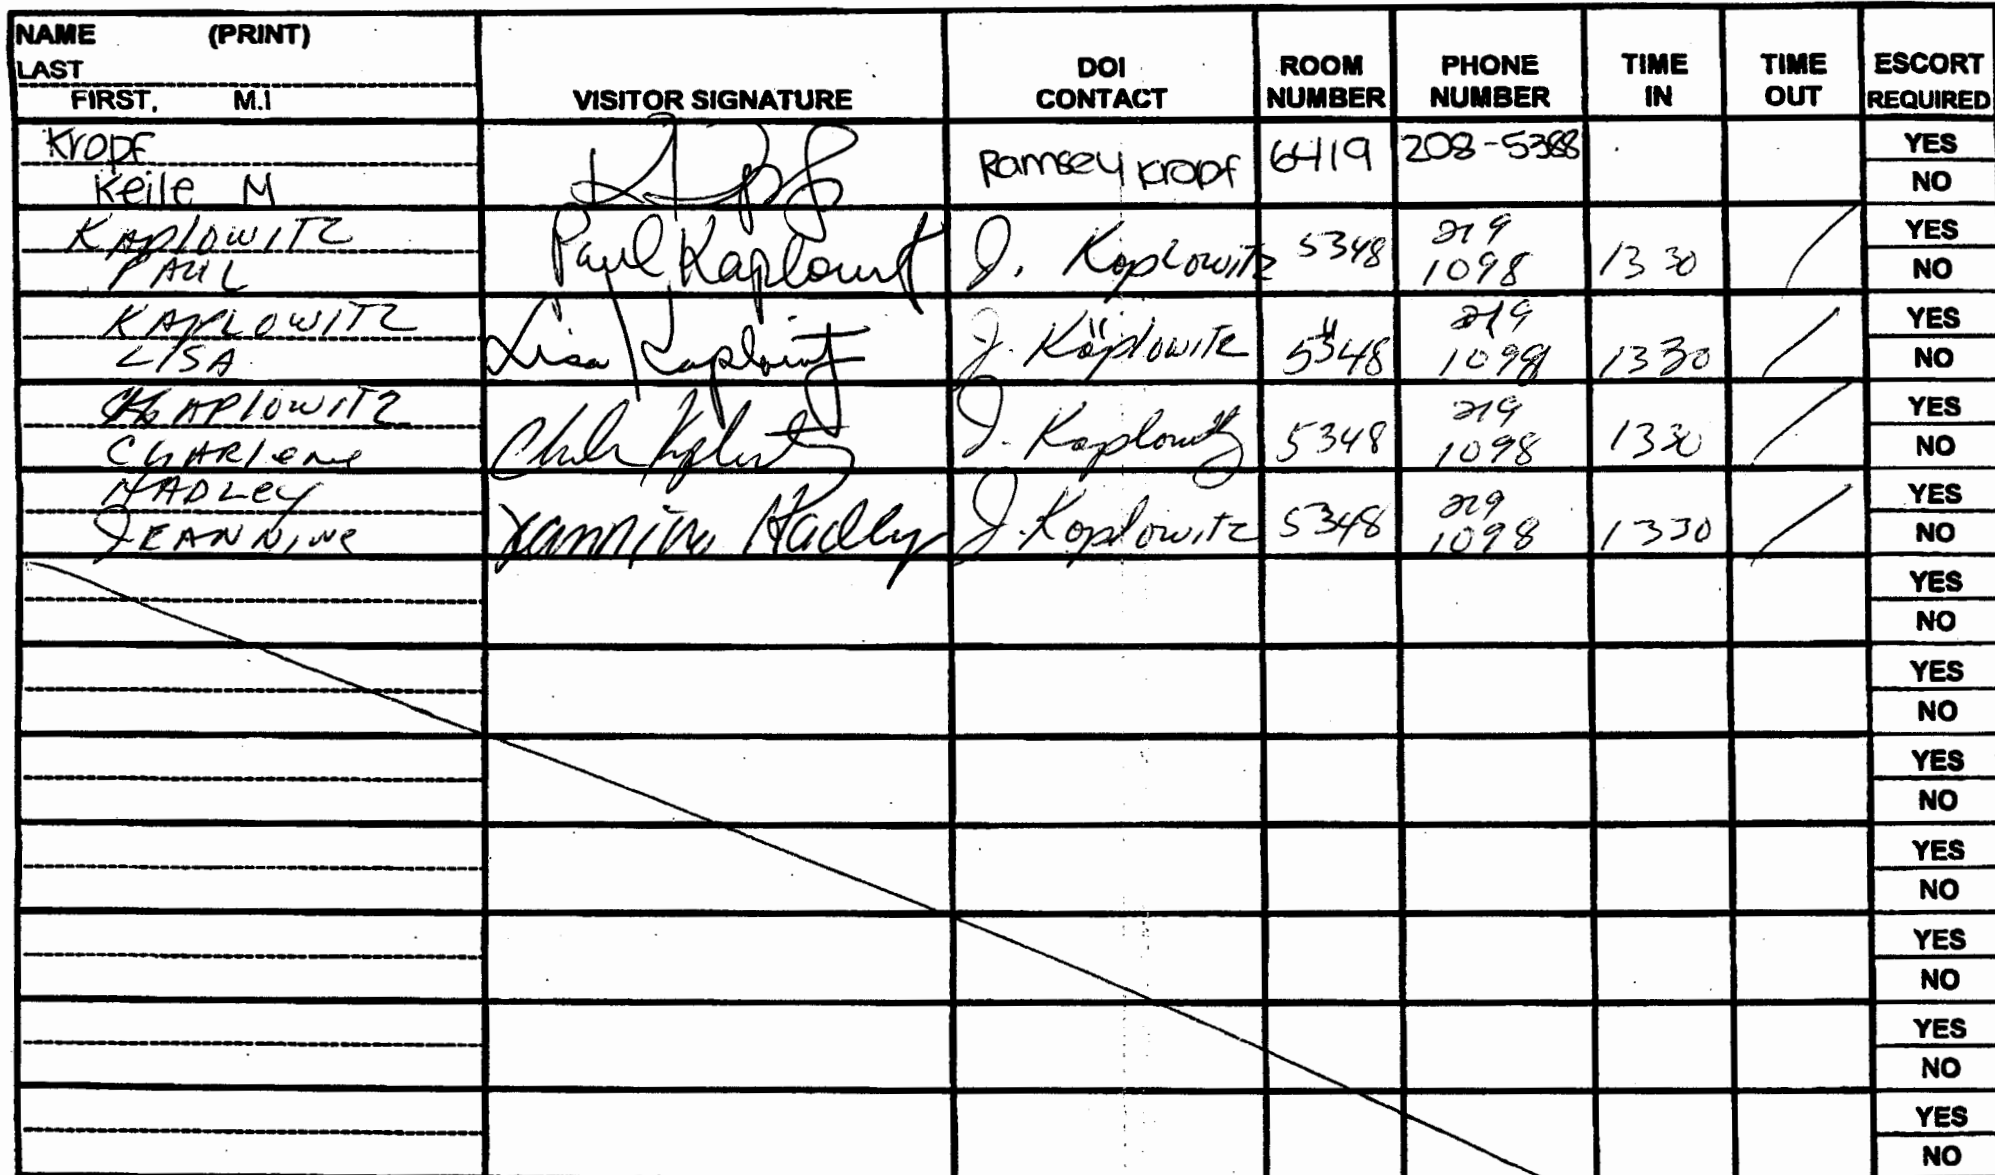 NAME (PRINT)
LAST
FIRST, M.I
VISITOR SIGNATURE
DOI CONTACT
ROOM NUMBER
PHONE NUMBER
TIME IN
TIME OUT
ESCORT REQUIRED
Kropf
Keile M
Ramsey Kropf 6419 208-5388
YES
NO
KAPLOWITZ
PAUL
Paul Kaplowitz
J. Kaplowitz 5348 219 1098 1330 /
YES
NO
KAPLOWITZ
LISA
Lisa Kaplowitz
J. Kaplowitz 5348 219 1098 1330 /
YES
NO
KAPLOWITZ
CHARLENE
J. Kaplowitz 5348 219 1098 1330 /
YES
NO
HADLEY
JEANNINE
Jeannine Hadley
J. Kaplowitz 5348 219 1098 1330 /
YES
NO
YES
NO
YES
NO
YES
NO
YES
NO
YES
NO
YES
NO
YES
NO